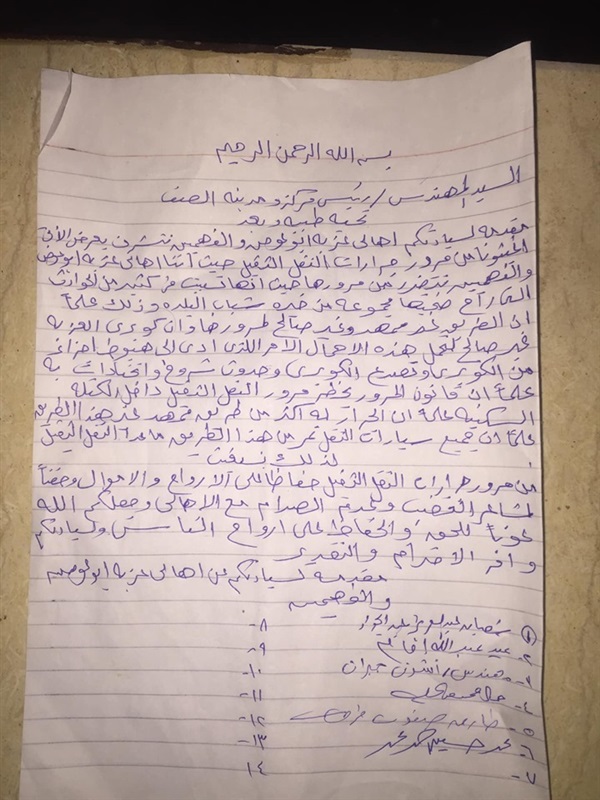 بسم الله الرحمن الرحيم
السيد المهندس / رئيس مركز ومدينة الصف
تحية طيبة وبعد
مقدمه لسيادتكم اهالى عزبة ابو والفهميين نتشرف بعرض الأتى
من مرور جرارات النقل الثقيل حيث أننا اهالى عزبة
والفهميين نتضرر من مرورها حيث انها تسببت فى كثير من الحوادث
التى راح ضحيتها مجموعه من خيره شباب البلده وذلك علماً
ان الطريق غير ممهد وغير صالح لمرورها وان كوبرى العزبه
غير صالح لتحمل هذه الاحمال الامر اللذى ادى الى هبوط اجزاء
من الكوبرى وتصدع الكوبرى وحدوث شروخ به
علماً ان قانون المرور يحظر مرور النقل الثقيل داخل الكتله
السكنيه علماً ان الجرار له أكثر من طريق ممهد غير هذا الطريق
علماً ان جميع سيارات النقل تمر من هذا الطريق ماعدا النقل الثقيل
لذلك
من مرور جرارات النقل الثقيل حفاظا على الارواح والاموال وحقناً
لمشاعر الغضب وعدم الصدام مع الاهالى وجعلكم الله
عوناً للحق والحفاظ على ارواح الناس ولسيادتكم
وافر الاحترام والتقدير
مقدمه لسيادتكم من اهالى عزبة ابو
والفهميين
١
٢- عيد عبدالله
٣-
٤-
٥-
٦- محمد حسين محمد
٧-
٨-
٩-
١٠-
١١-
١٢-
١٣-
١٤